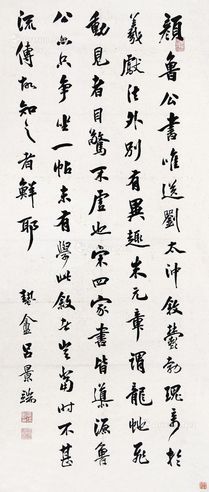 顏魯公書唯送劉太沖敘鬱勃瑰奇於
羲獻法外別有異趣米元章謂龍蛇飛
動見者目驚不虛也宋四家書皆導源魯
公亦只爭坐一帖未有學此敘者豈當時不甚
流傳故知之者鮮耶
蟄盦呂景端